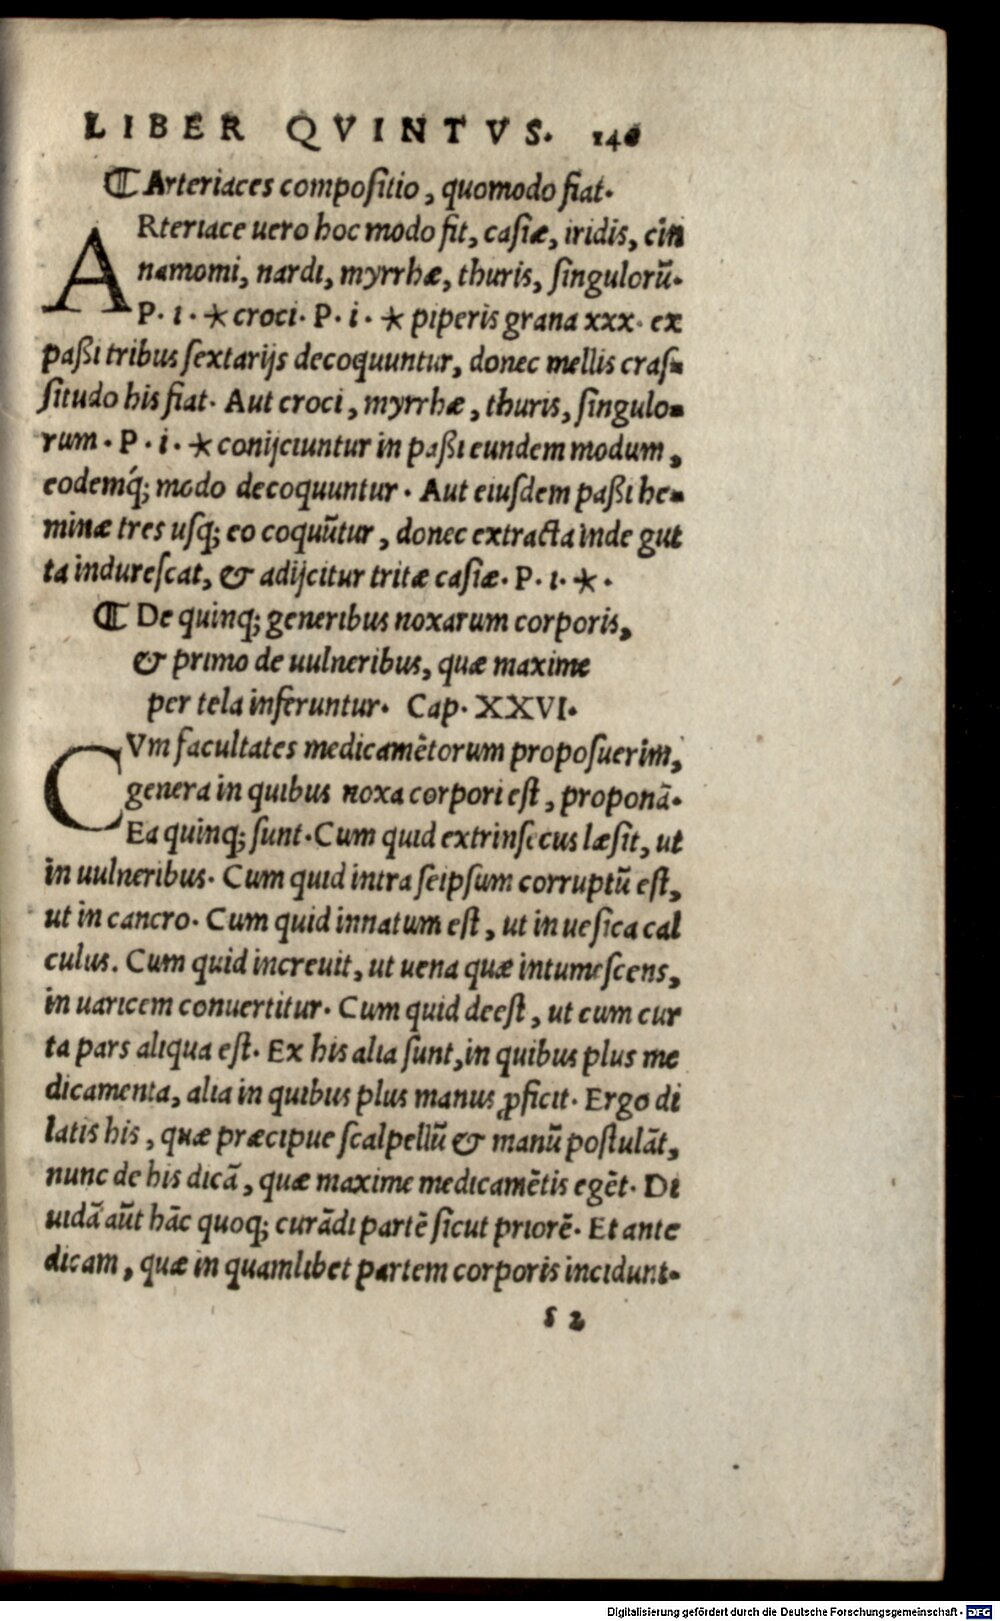 LIBER QVINTVS. 140
⁋ Arteriaces compositio, quomodo fiat.
ARteriace uero hoc modo fit, casiæ, iridis, cin
namomi, nardi, myrrhæ, thuris, singulorũ.
P. i. * croci. P. i. * piperis grana xxx. ex
paßi tribus sextarijs decoquuntur, donec mellis cras-
situdo his fiat. Aut croci, myrrhæ, thuris, singulo-
rum. P. i. * conijciuntur in paßi eundem modum,
eodemq́; modo decoquuntur. Aut eiusdem paßi he-
minæ tres usq; eo coquũtur, donec extracta inde gut
ta indurescat, & adijcitur tritæ casiæ. P. i. *.
⁋ De quinq; generibus noxarum corporis,
& primo de uulneribus, quæ maxime
per tela inferuntur. Cap. XXVI.
CVm facultates medicamẽtorum proposuerim,
genera in quibus noxa corpori est, proponã.
Ea quinq; sunt. Cum quid extrinsecus læsit, ut
in uulneribus. Cum quid intra seipsum corruptũ est,
ut in cancro. Cum quid innatum est, ut in uesica cal
culus. Cum quid increuit, ut uena quæ intumescens,
in uaricem conuertitur. Cum quid deest, ut cum cur
ta pars aliqua est. Ex his alia sunt, in quibus plus me
dicamenta, alia in quibus plus manus ꝓficit. Ergo di
latis his, quæ præcipue scalpellũ & manũ postulãt,
nunc de his dicã, quæ maxime medicamẽtis egẽt. Di
uidã aũt hãc quoq; curãdi partẽ sicut priorẽ. Et ante
dicam, quæ in quamlibet partem corporis incidunt.
s 2
Digitalisierung gefördert durch die Deutsche Forschungsgemeinschaft - DFG